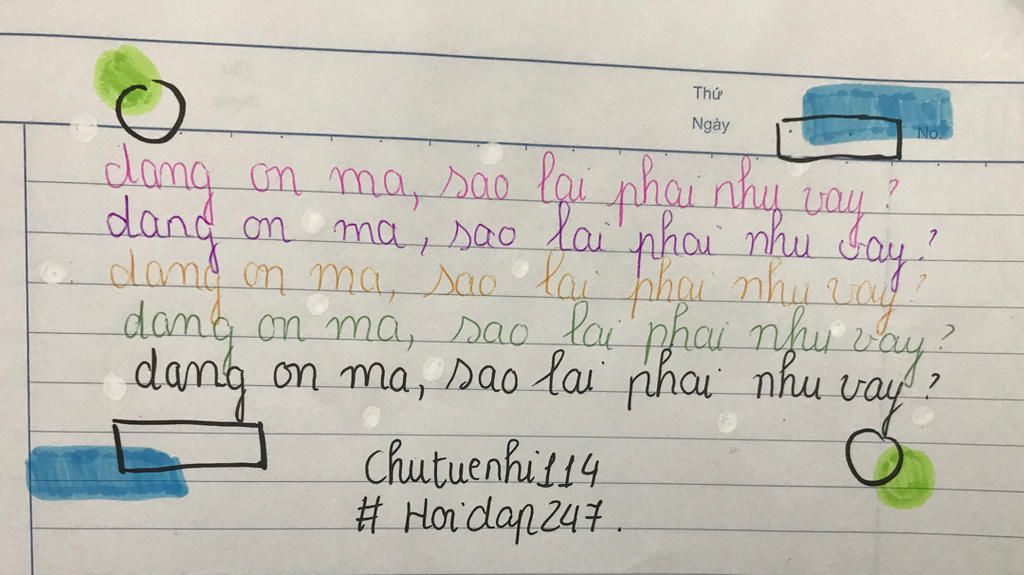 Thứ
Ngày
No.
dang on ma, sao lai phai nhu vay?
dang on ma, sao lai phai nhu vay?
dang on ma, sao lai phai nhu vay?
dang on ma, sao lai phai nhu vay?
dang on ma, sao lai phai nhu vay?
Chutuenhi114
# Hoidap247.